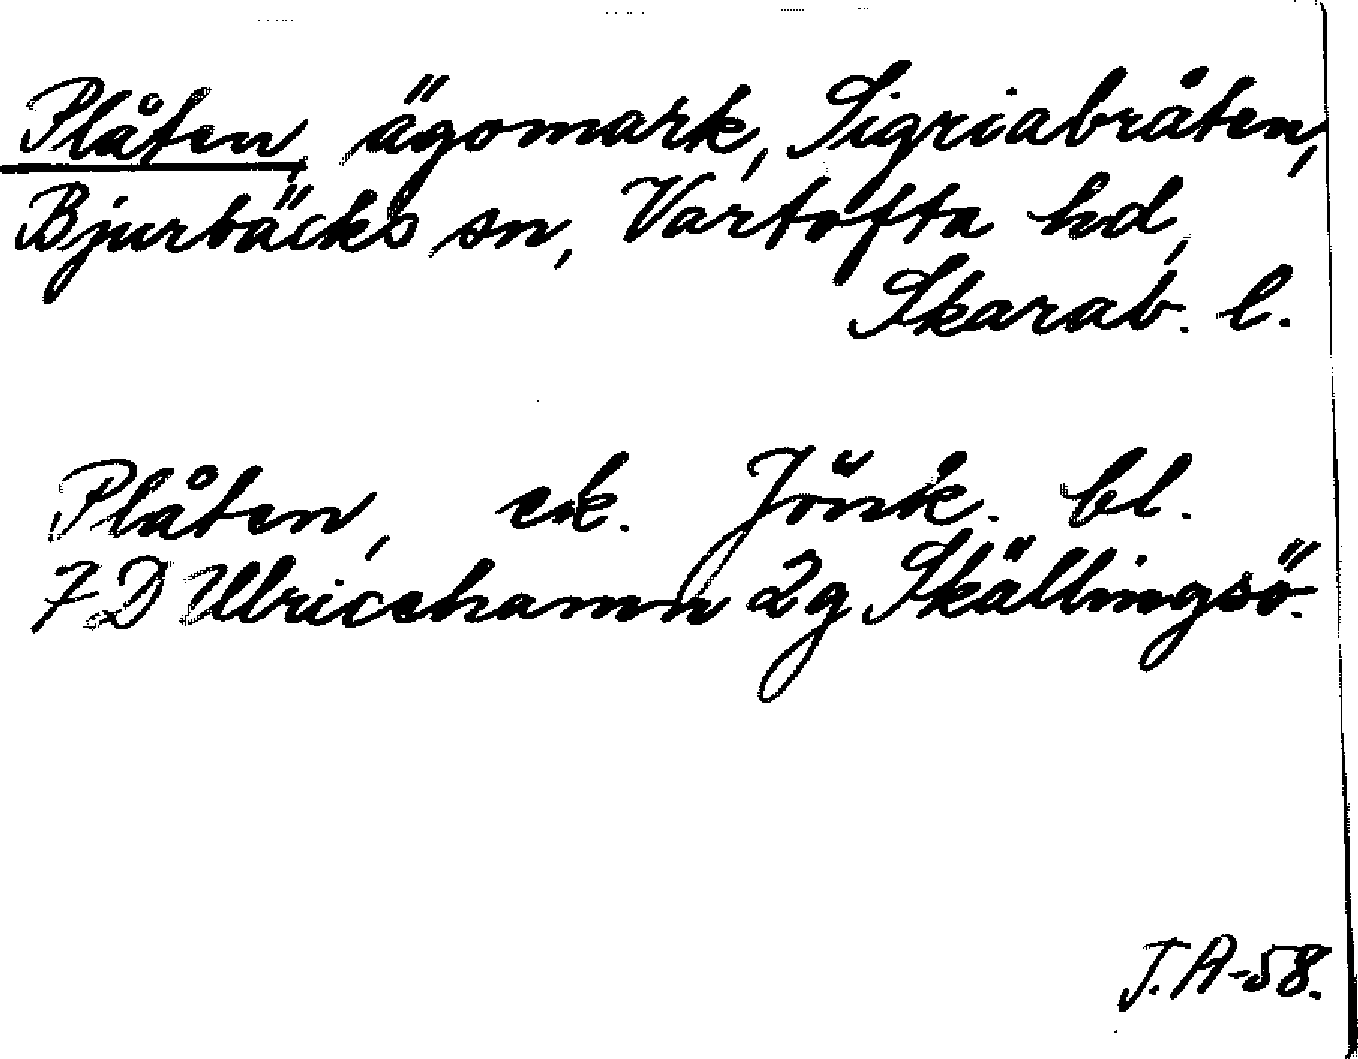 Plåten, ägomark, Sigriabråten,
Bjurbäcks sn, Vartofta hd,
Skarab. l.
Plåten, ek. Jönk. bl.
7 D Ulricehamn 2g Skällingsö.
J.A-58.